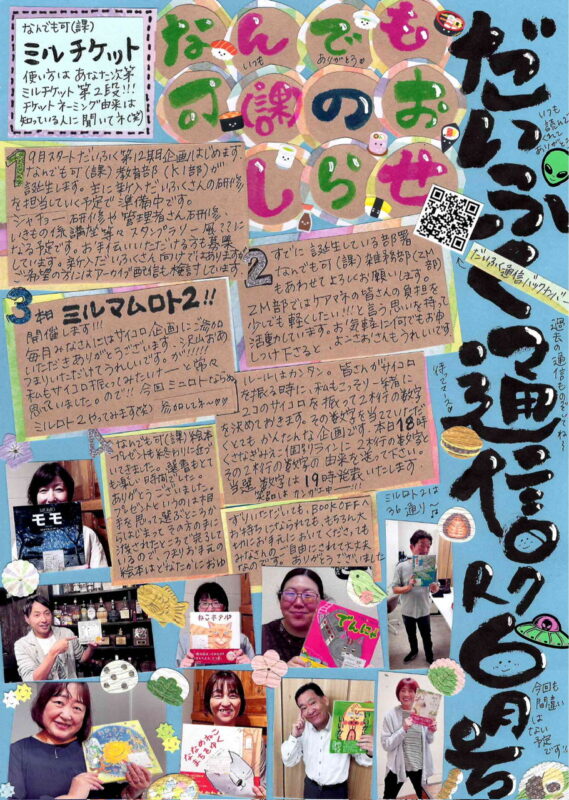 だいふく通信R7 6月号
いつも読んでくれてありがとう
なんでも可(課)
ミルチケット
使い方は あなた次第
ミルチケット 第2段!!!
チケットネーミング由来は
知っている人に聞いてネ(笑)
なんでも
いつも
ありがとう
可(課)のお
しらせ
だいふく通信バックナンバー
過去の通信ものぞいてね〜
待ってマース
1 9月スタートだいふく第12期企画はじめます。
なんでも可(課)教育部(KI部)が
誕生します。主に新人だいふくさんの研修
を担当していく予定で準備中です。
シャチョー研修や管理者さん研修、
いきもの係講座等々スタンプラリー風???に
なる予定です。お手伝いいただける方も募集
しています。新人だいふくさん向けではありますが
ご希望の方にはアーカイブ配信も検討します
2 すでに誕生している部署
なんでも可(課)雑務部(ZM部)
もあわせてよろしくお願いします。
ZM部ではケアマネの皆さんの負担を
少しでも軽くしたい!!!と言う思いを持って
活動しています。お気軽に何でもお申
しつけ下さると よこさおさんもうれしいです
3 本日 ミルマムロト2!!
開催します!!!
毎月みなさんにはサイコロ企画にご参加
いただきありがとうございます。沢山お あ
つまりいただけてうれしいです。が!!!!!!
私もサイコロ振ってみたいナーーと常々
思っていました。ので!!今回ミニロトならぬ
ミルロト2やってみます(笑) 参加してネ
ルールはカンタン。皆さんがサイコロ
を振る時に、私もこっそり一緒に
2コのサイコロを振って2桁の数字
を決めておきます。その数字を当てていただ
くとてもかんたんな企画です。本日18時
くさなぎみえこ個別ラインに2桁の数字と
その2桁の数字の由来を送って下さい。
当選数字は19時発表いたします
ミルロト2は
36通り〜
4 なんでも可(課)絵本
プレゼントも終わりに近づ
いてきました。選書もとて
も楽しい時間でした。
ありがとうございました。
プレゼントというのは相
手を思って選ぶところか
らはじまって その方の手に
渡されたところで完了して
いるので、つまりお手元の
絵本はどなたかにおゆ
ずりいただいても、BOOKOFFへ
お持ちになられても、もちろん大
切にお手元においてくださっても
みなさんのご自由にされて大丈夫
なのです。ありがとうございました
モモ
MOMO
ねこホテル
でんにゃ
ななめねこ
まちをゆく
今回も
間違い
はない
予定
です!!